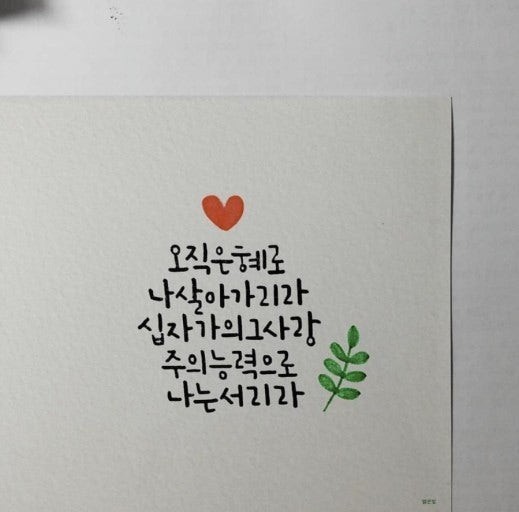 오직은혜로
나살아가리라
십자가의그사랑
주의능력으로
나는서리라